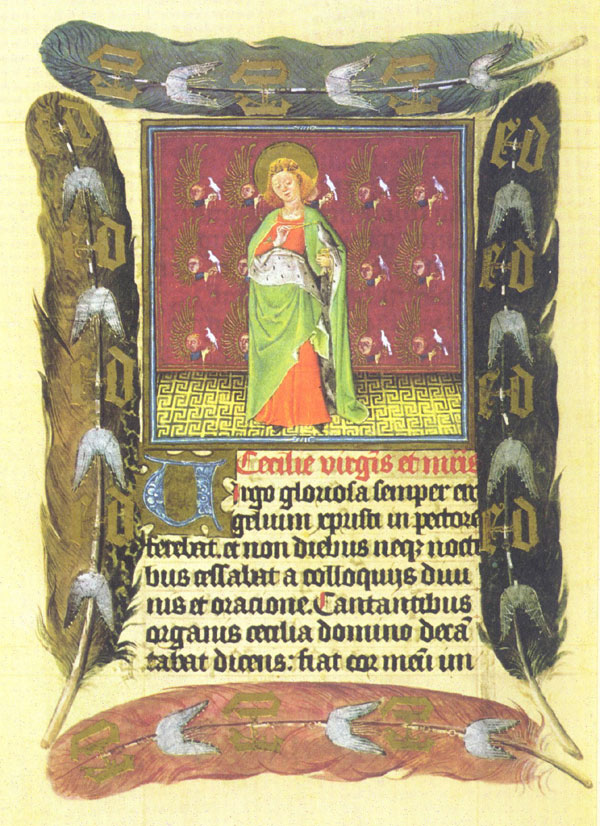 ed ed ed
ed ed
ed ed
ed ed
ed ed
Cecilie virgis et mris
Virgo gloriosa semper eū
gelium xpristi in pectore
ferebat. et non diebus neqꝫ nocti
bus cessabat a colloquijs diui
nis et oracione. Cantantibus
organis cecilia domino decā
tabat dicens: fiat cor meū im
ed ed ed